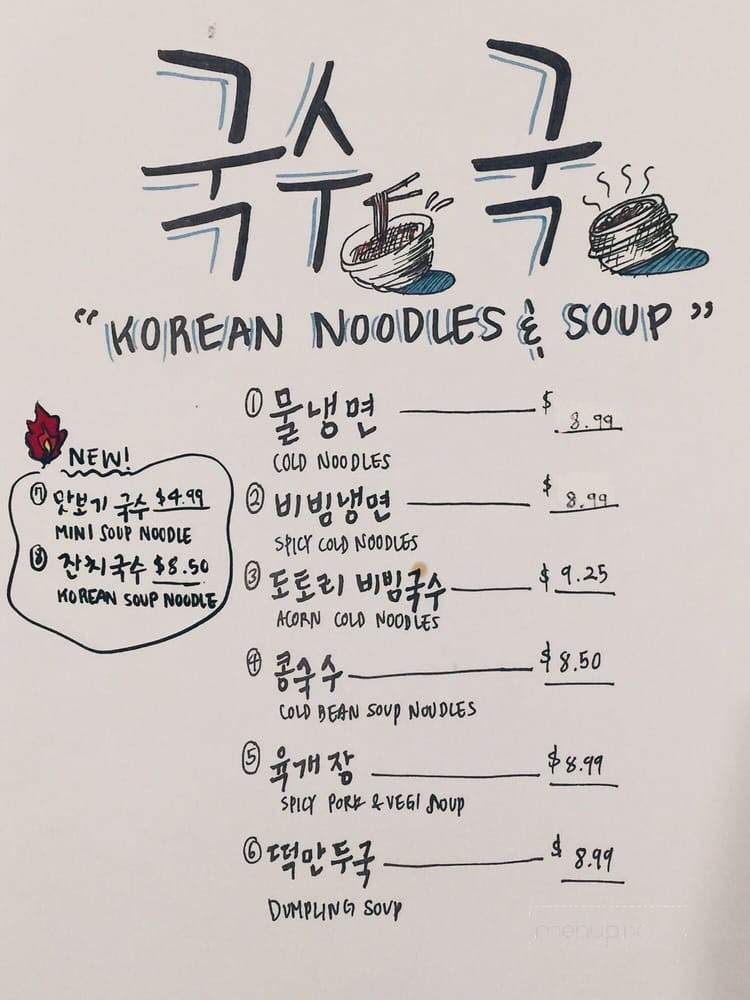 국수 국
"KOREAN NOODLES & SOUP"
① 물냉면 $ 8.99
COLD NOODLES
② 비빔냉면 $ 8.99
SPICY COLD NOODLES
③ 도토리 비빔국수 $ 9.25
ACORN COLD NOODLES
④ 콩국수 $ 8.50
COLD BEAN SOUP NOUDLES
⑤ 육개장 $ 8.99
SPICY PORK & VEGI SOUP
⑥ 떡만두국 $ 8.99
DUMPLING SOUP
NEW!
⑦ 맛보기 국수 $4.99
MINI SOUP NOODLE
⑧ 잔치국수 $8.50
KOREAN SOUP NOODLE
menupix